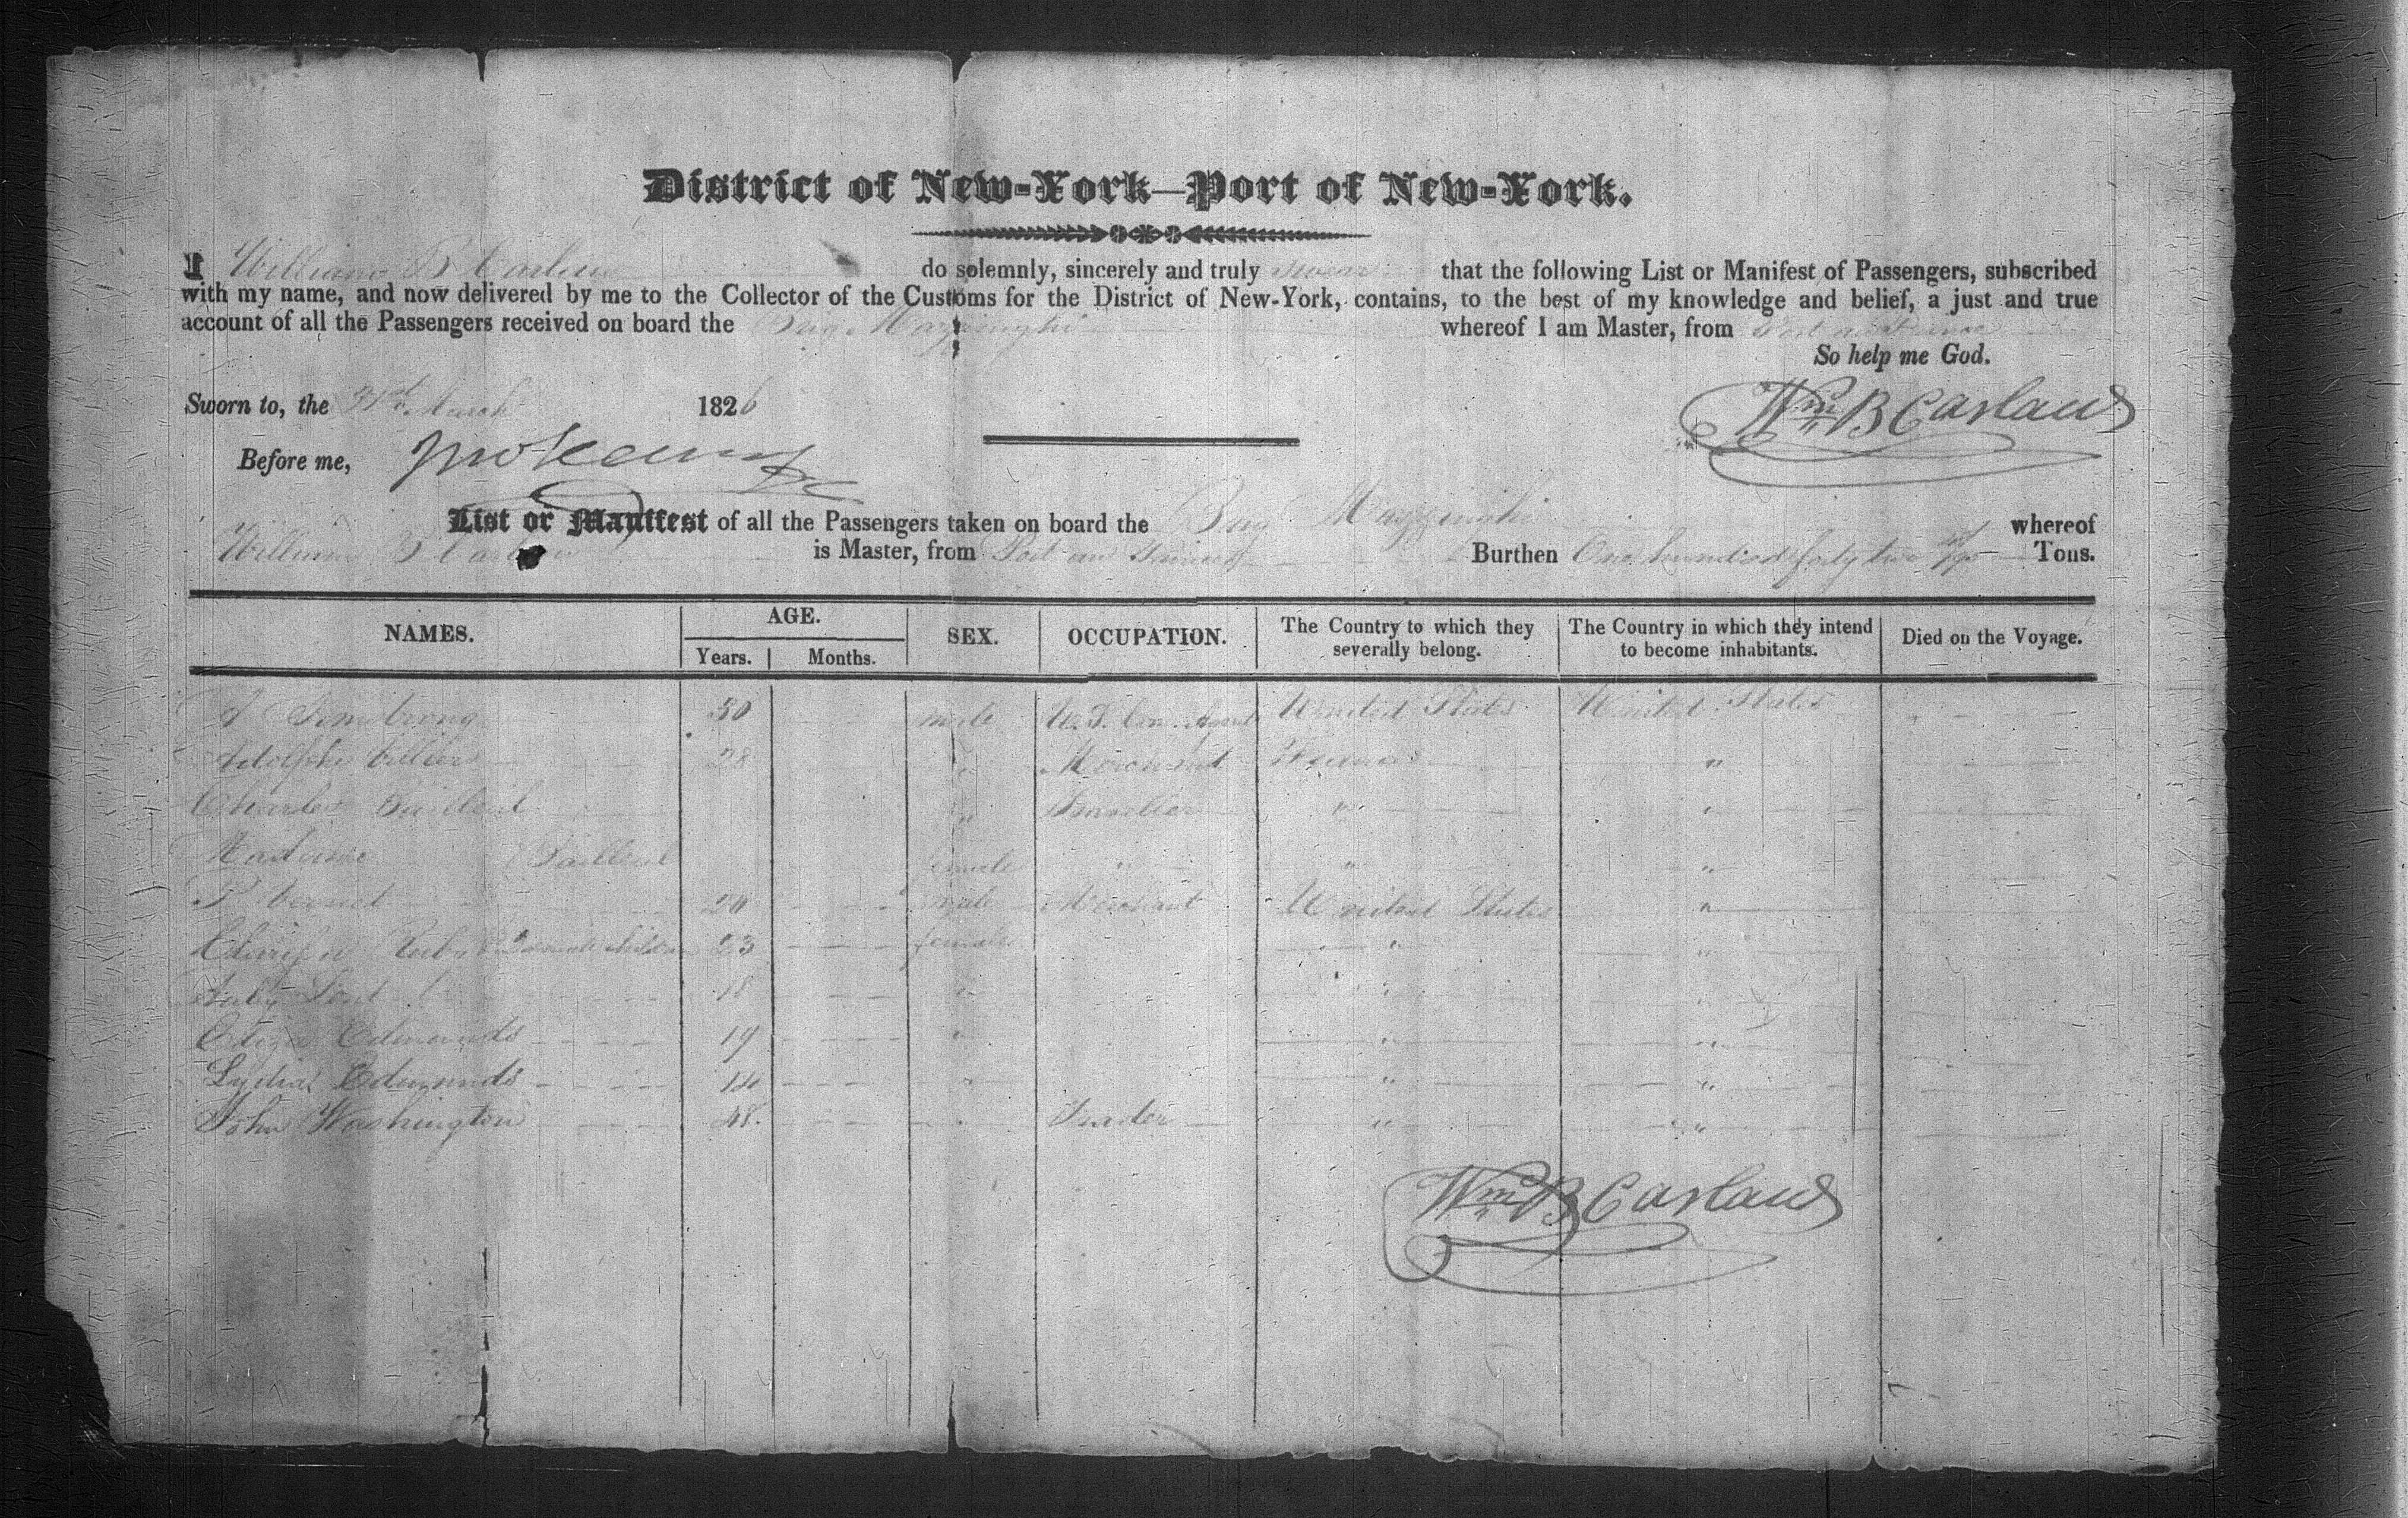 District of New-York—Port of New-York.
I William B Carlaw do solemnly, sincerely and truly swear that the following List or Manifest of Passengers, subscribed
with my name, and now delivered by me to the Collector of the Customs for the District of New-York, contains, to the best of my knowledge and belief, a just and true
account of all the Passengers received on board the Brig whereof I am Master, from Port au Prince
So help me God.
Sworn to, the 31st March 1826
Wm B Carlaw
Before me,
List or Manifest of all the Passengers taken on board the Brig whereof
William B Carlaw is Master, from Port au Prince Burthen One hundred forty two /95 Tons.
NAMES. AGE. SEX. OCCUPATION. The Country to which they severally belong. The Country in which they intend to become inhabitants. Died on the Voyage.
Years. Months.
A Armstrong 50 male U.S. Com. Agent United States United States
Adolphe 28 " Merchant France "
Charles " Traveller " "
Madame female " " "
P 20 male Merchant United States "
Ruby & 2 female children 23 female " "
18 " " "
Eliza Edmonds 19 " " "
Lydia Edmonds 14 " " "
John Washington 48 " Trader " "
Wm B Carlaw